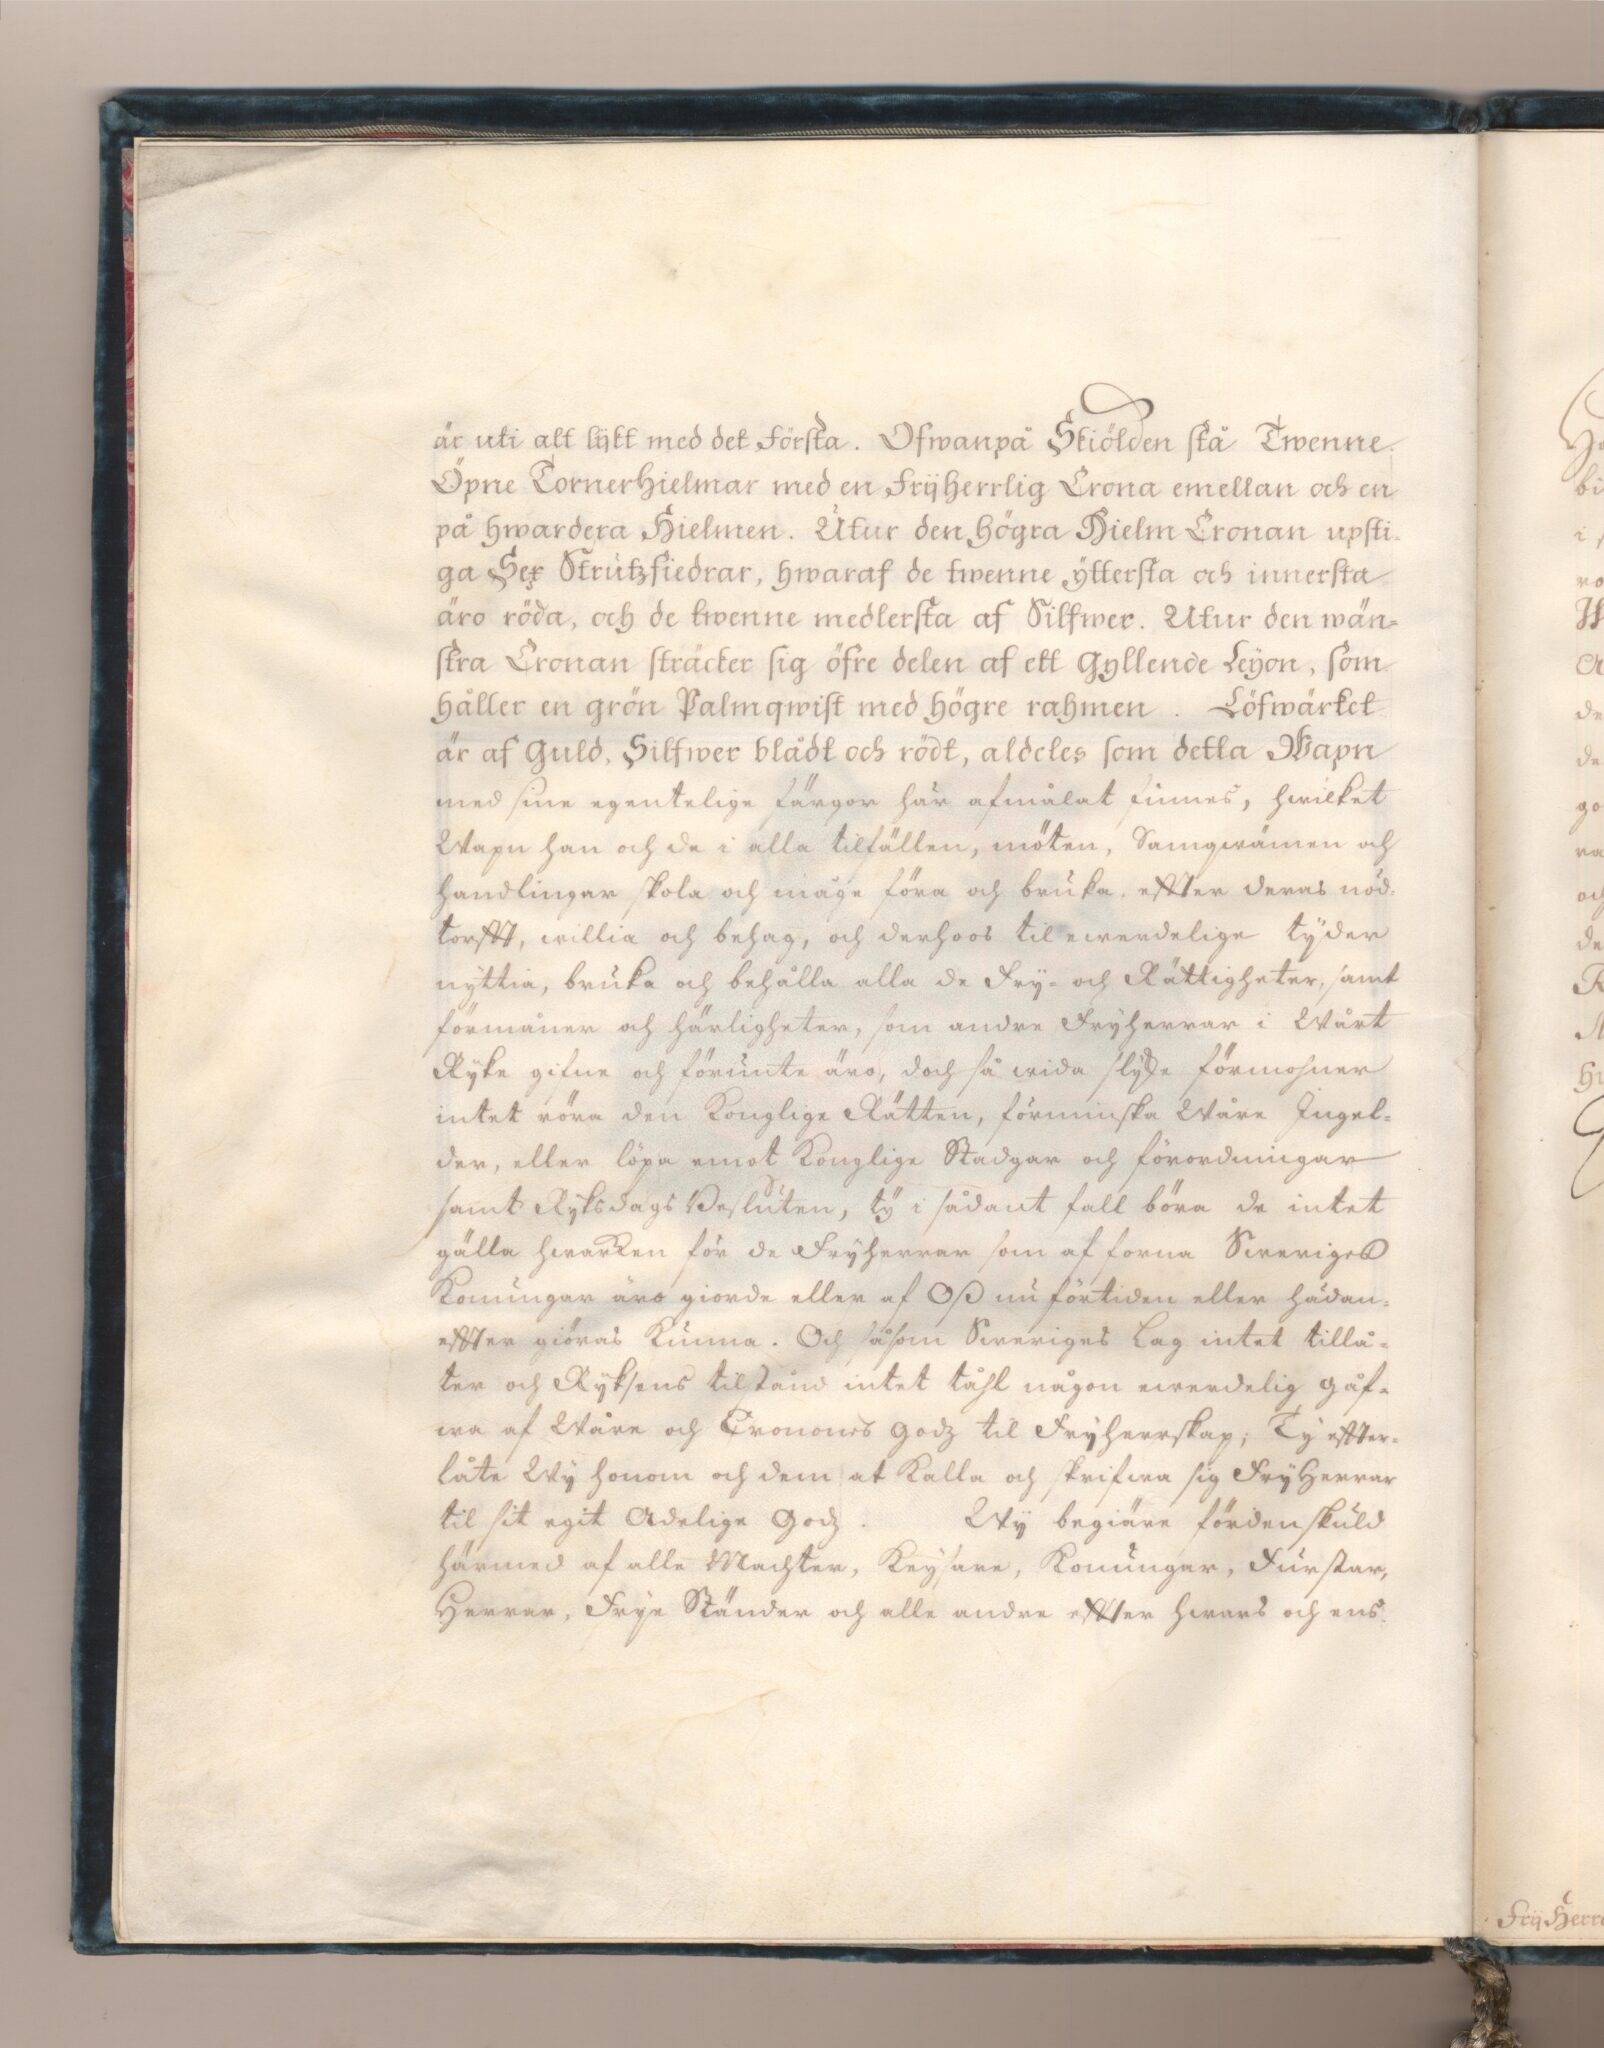 är uti alt lijkt med det första. Ofwanpå Skiölden stå Twenne
Öpne TornerHielmar med en Frijherrlig Crona emellan och en
på hwardera Hielmen. Utur den högra Hielm Cronan upsti-
ga Sex Strutzfiedrar, hwaraf de twenne yttersta och innersta
äro röda, och de twenne medlersta af Silfwer. Utur den wän-
stra Cronan sträcker sig öfre delen af ett Gyllende Leyon, som
håller en grön Palmqwist med högre rahmen. Löfwärket
är af Guld, Silfwer blådt och rödt, aldeles som detta Wapn
med sine egentelige färgor här afmålat finnes, hwilket
Wapn han och de i alla tilfällen, möten, Samqwämen och
handlingar skola och måge föra och bruka efter deras nöd-
torfft, willia och behag, och derhoos til ewerdelige tÿder
nÿttia, bruka och behålla alla de Fry- och Rättigheter, samt
förmåner och härligheter, som andre Frÿherrar i Wårt
Ryke gifne och förunte äro, doch så wida slyke förmohner
intet röra den Konglige Rätten, förminska Wåre Ingel-
der, eller löpa emot Konglige Stadgar och förordningar
samt Ryksdags Besluten, tÿ i sådant fall böra de intet
gälla hwarken för de Frÿherrar som af forna Sweriges
Konungar äro giorde eller af Oß nu förtiden eller hädan-
effter giöras Kunna. Och såsom Sweriges Lag intet tillå-
ter och Ryksens tilstånd intet tåhl någon ewerdelig gåf-
wa af Wåre och Cronones Godz til Frÿherrskap; Tÿ effter-
låte Wÿ honom och dem at Kalla och skrifwa sig FrÿHerrar
til sit egit Adelige Godz. Wÿ begiäre fördenskuld
härmed af alle Machter, Keÿsare, Konungar, Furstar,
Herrar, Frye Ständer och alle andre effter hwars och ens
Frij Herr